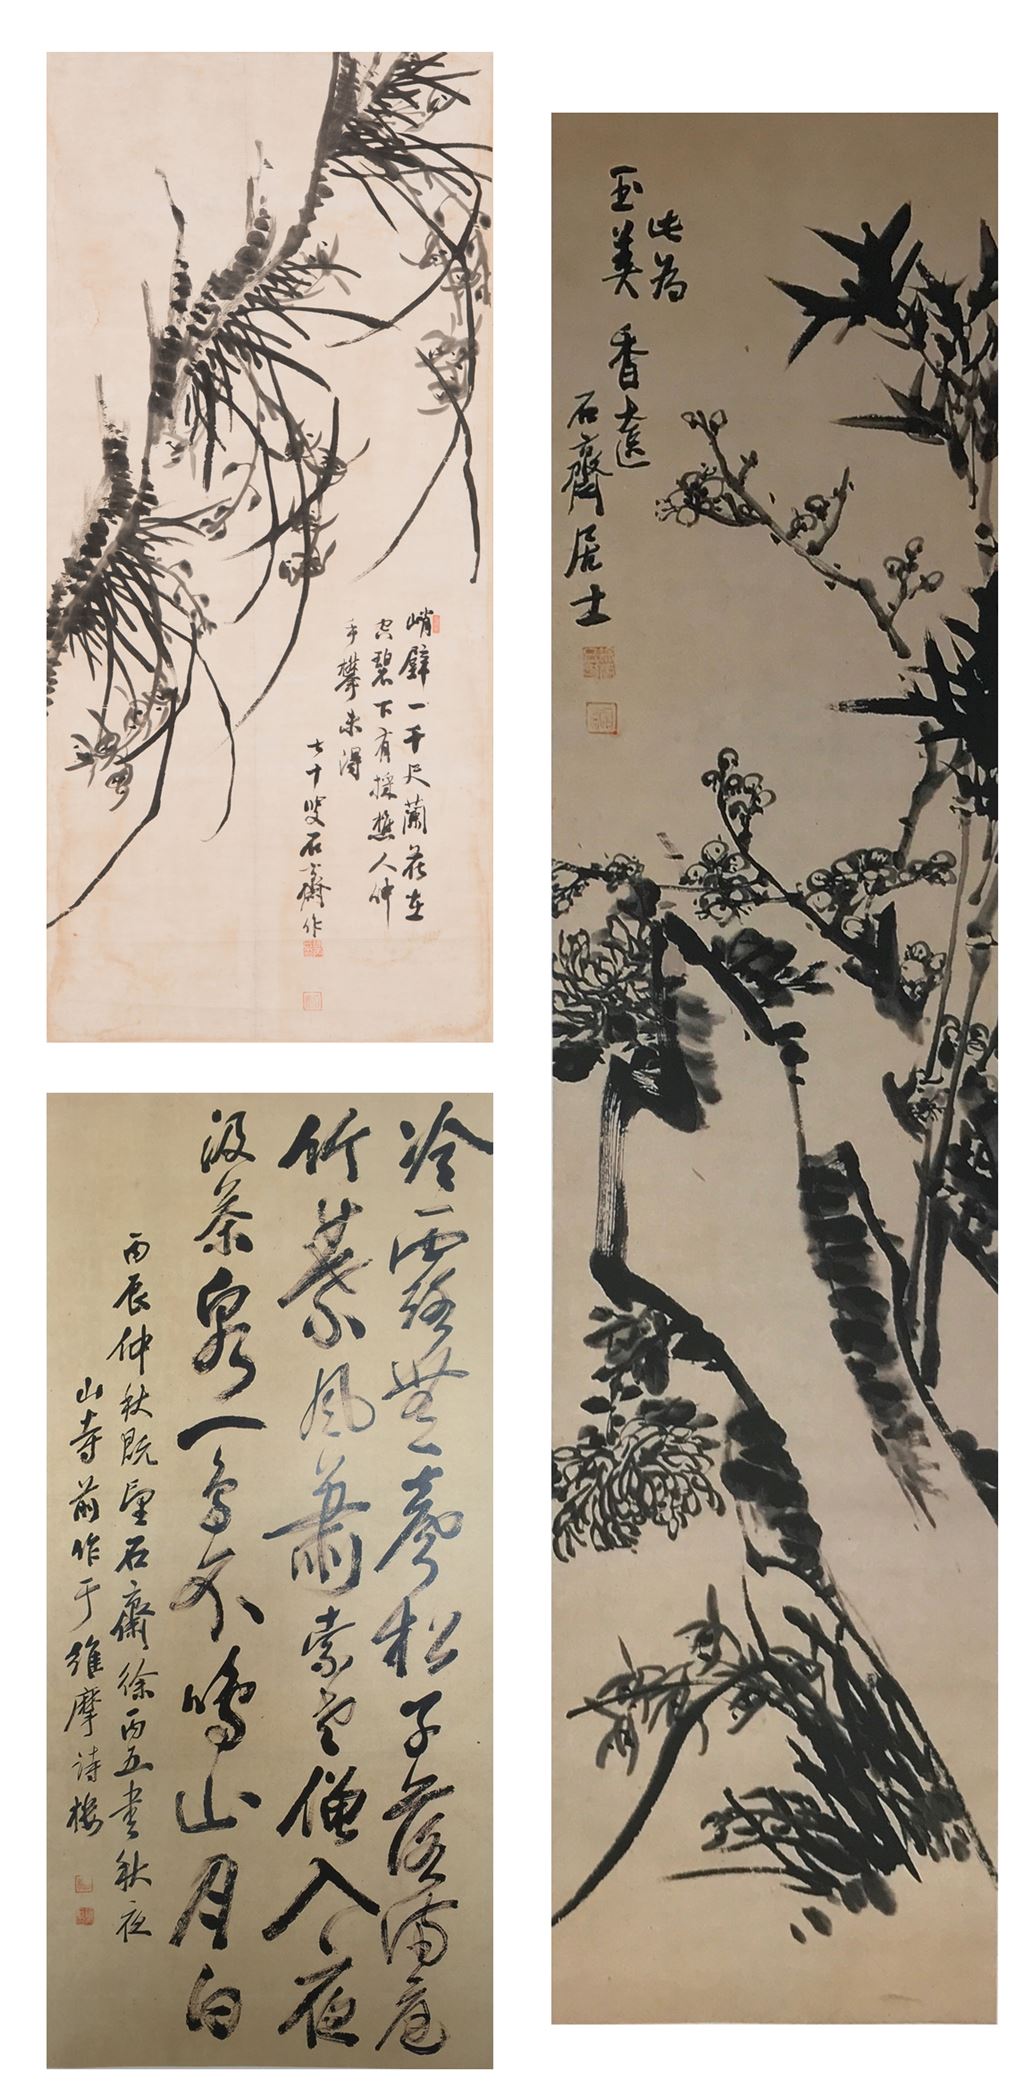 峭壁一千尺蘭花在
空碧下有採樵人伸
手攀未得
七十叟石齋作
此為
玉美香遠
石齋居士
冷露無聲松子落滿庭
竹蒙風蕭索老僧入夜
汲茶泉一鳥不鳴山月白
丙辰仲秋既望石齋徐丙五書秋夜
山寺前作于維摩诗楼